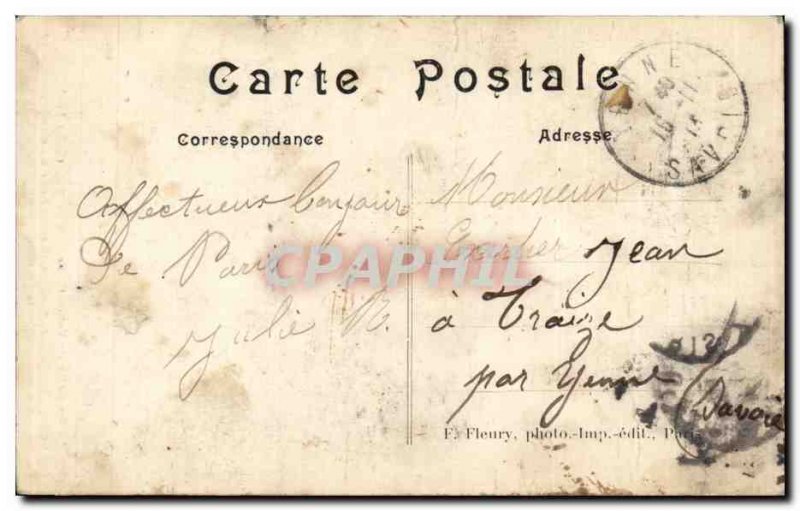 Carte Postale
Correspondance
Adresse
Affectueux bonjour
de Paris
Julie B.
Monsieur
Jean
à Traize
par Yenne
Savoie
CPAPHIL
YENNE
SAVOIE
F. Fleury, photo.-Imp.-édit., Paris